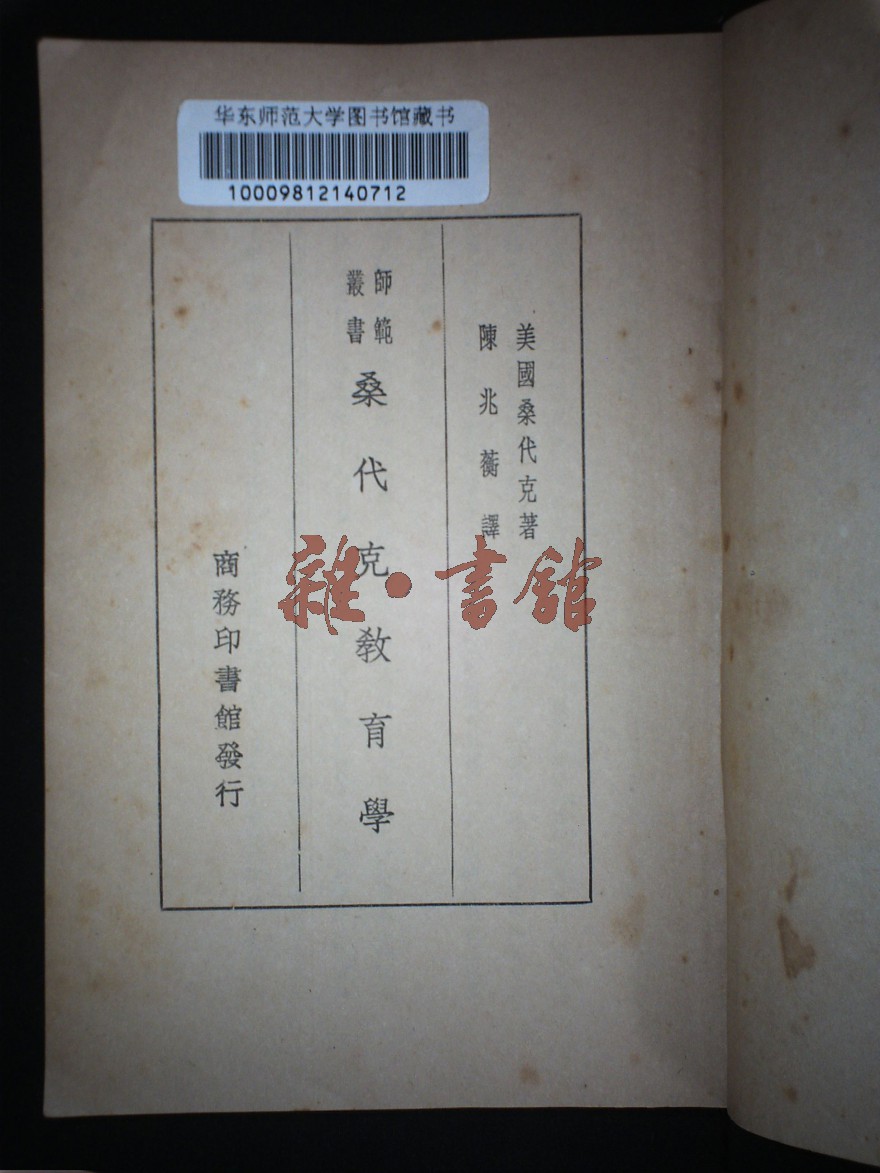 华东师范大学图书馆藏书
10009812140712
美國桑代克著
陳兆蘅譯
師範
叢書
桑代克教育學
商務印書館發行
雜·書館